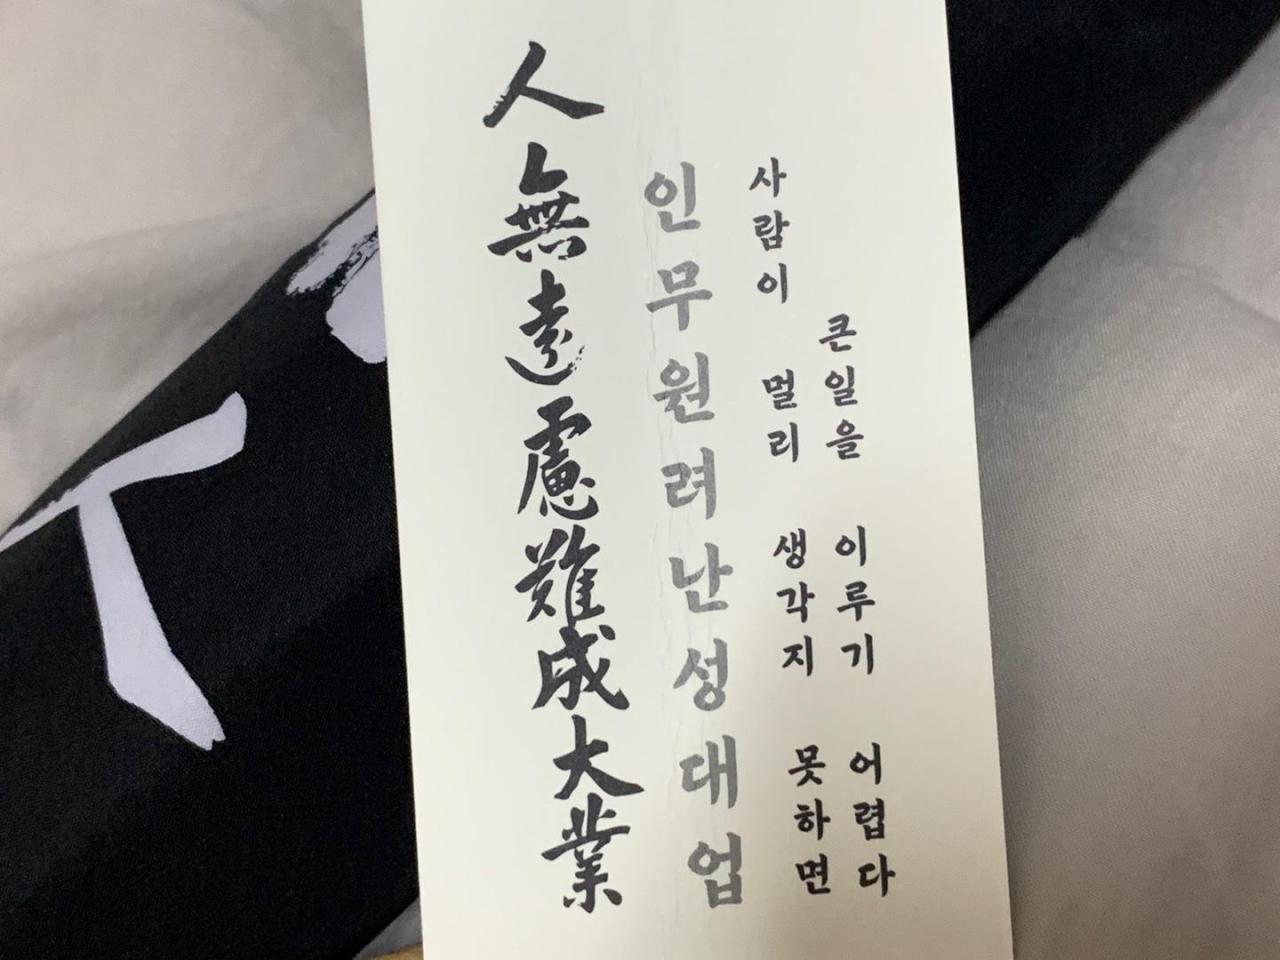 人無遠慮難成大業
인무원려난성대업
사람이 멀리 생각지 못하면
큰일을 이루기 어렵다